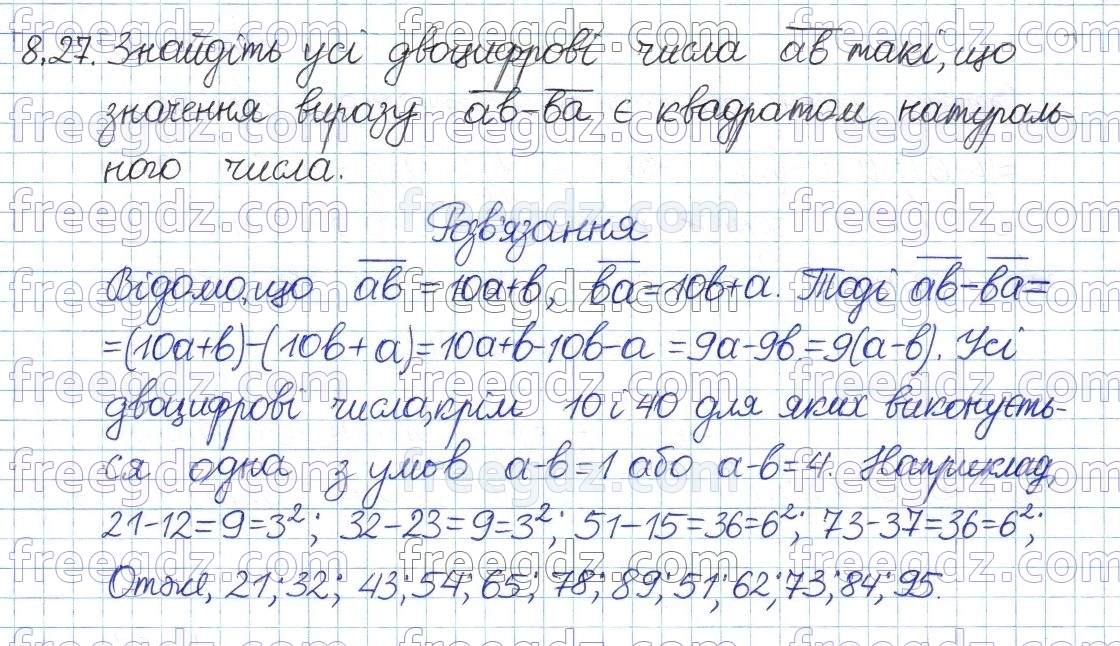 8.27. Знайдіть усі двоцифрові числа ab такі, що
значення виразу ab-ba є квадратом натураль-
ного числа.
Розв'язання
Відомо, що ab = 10a+b, ba=10b+a. Тоді ab-ba=
=(10a+b)-(10b+a)=10a+b-10b-a=9a-9b=9(a-b). Усі
двоцифрові числа, крім 10 і 40 для яких виконуєть-
ся одна з умов a-b=1 або a-b=4. Наприклад,
21-12=9=3²; 32-23=9=3²; 51-15=36=6²; 73-37=36=6²;
Отже, 21; 32; 43; 54; 65; 78; 89; 51; 62; 73; 84; 95.
freegdz.com